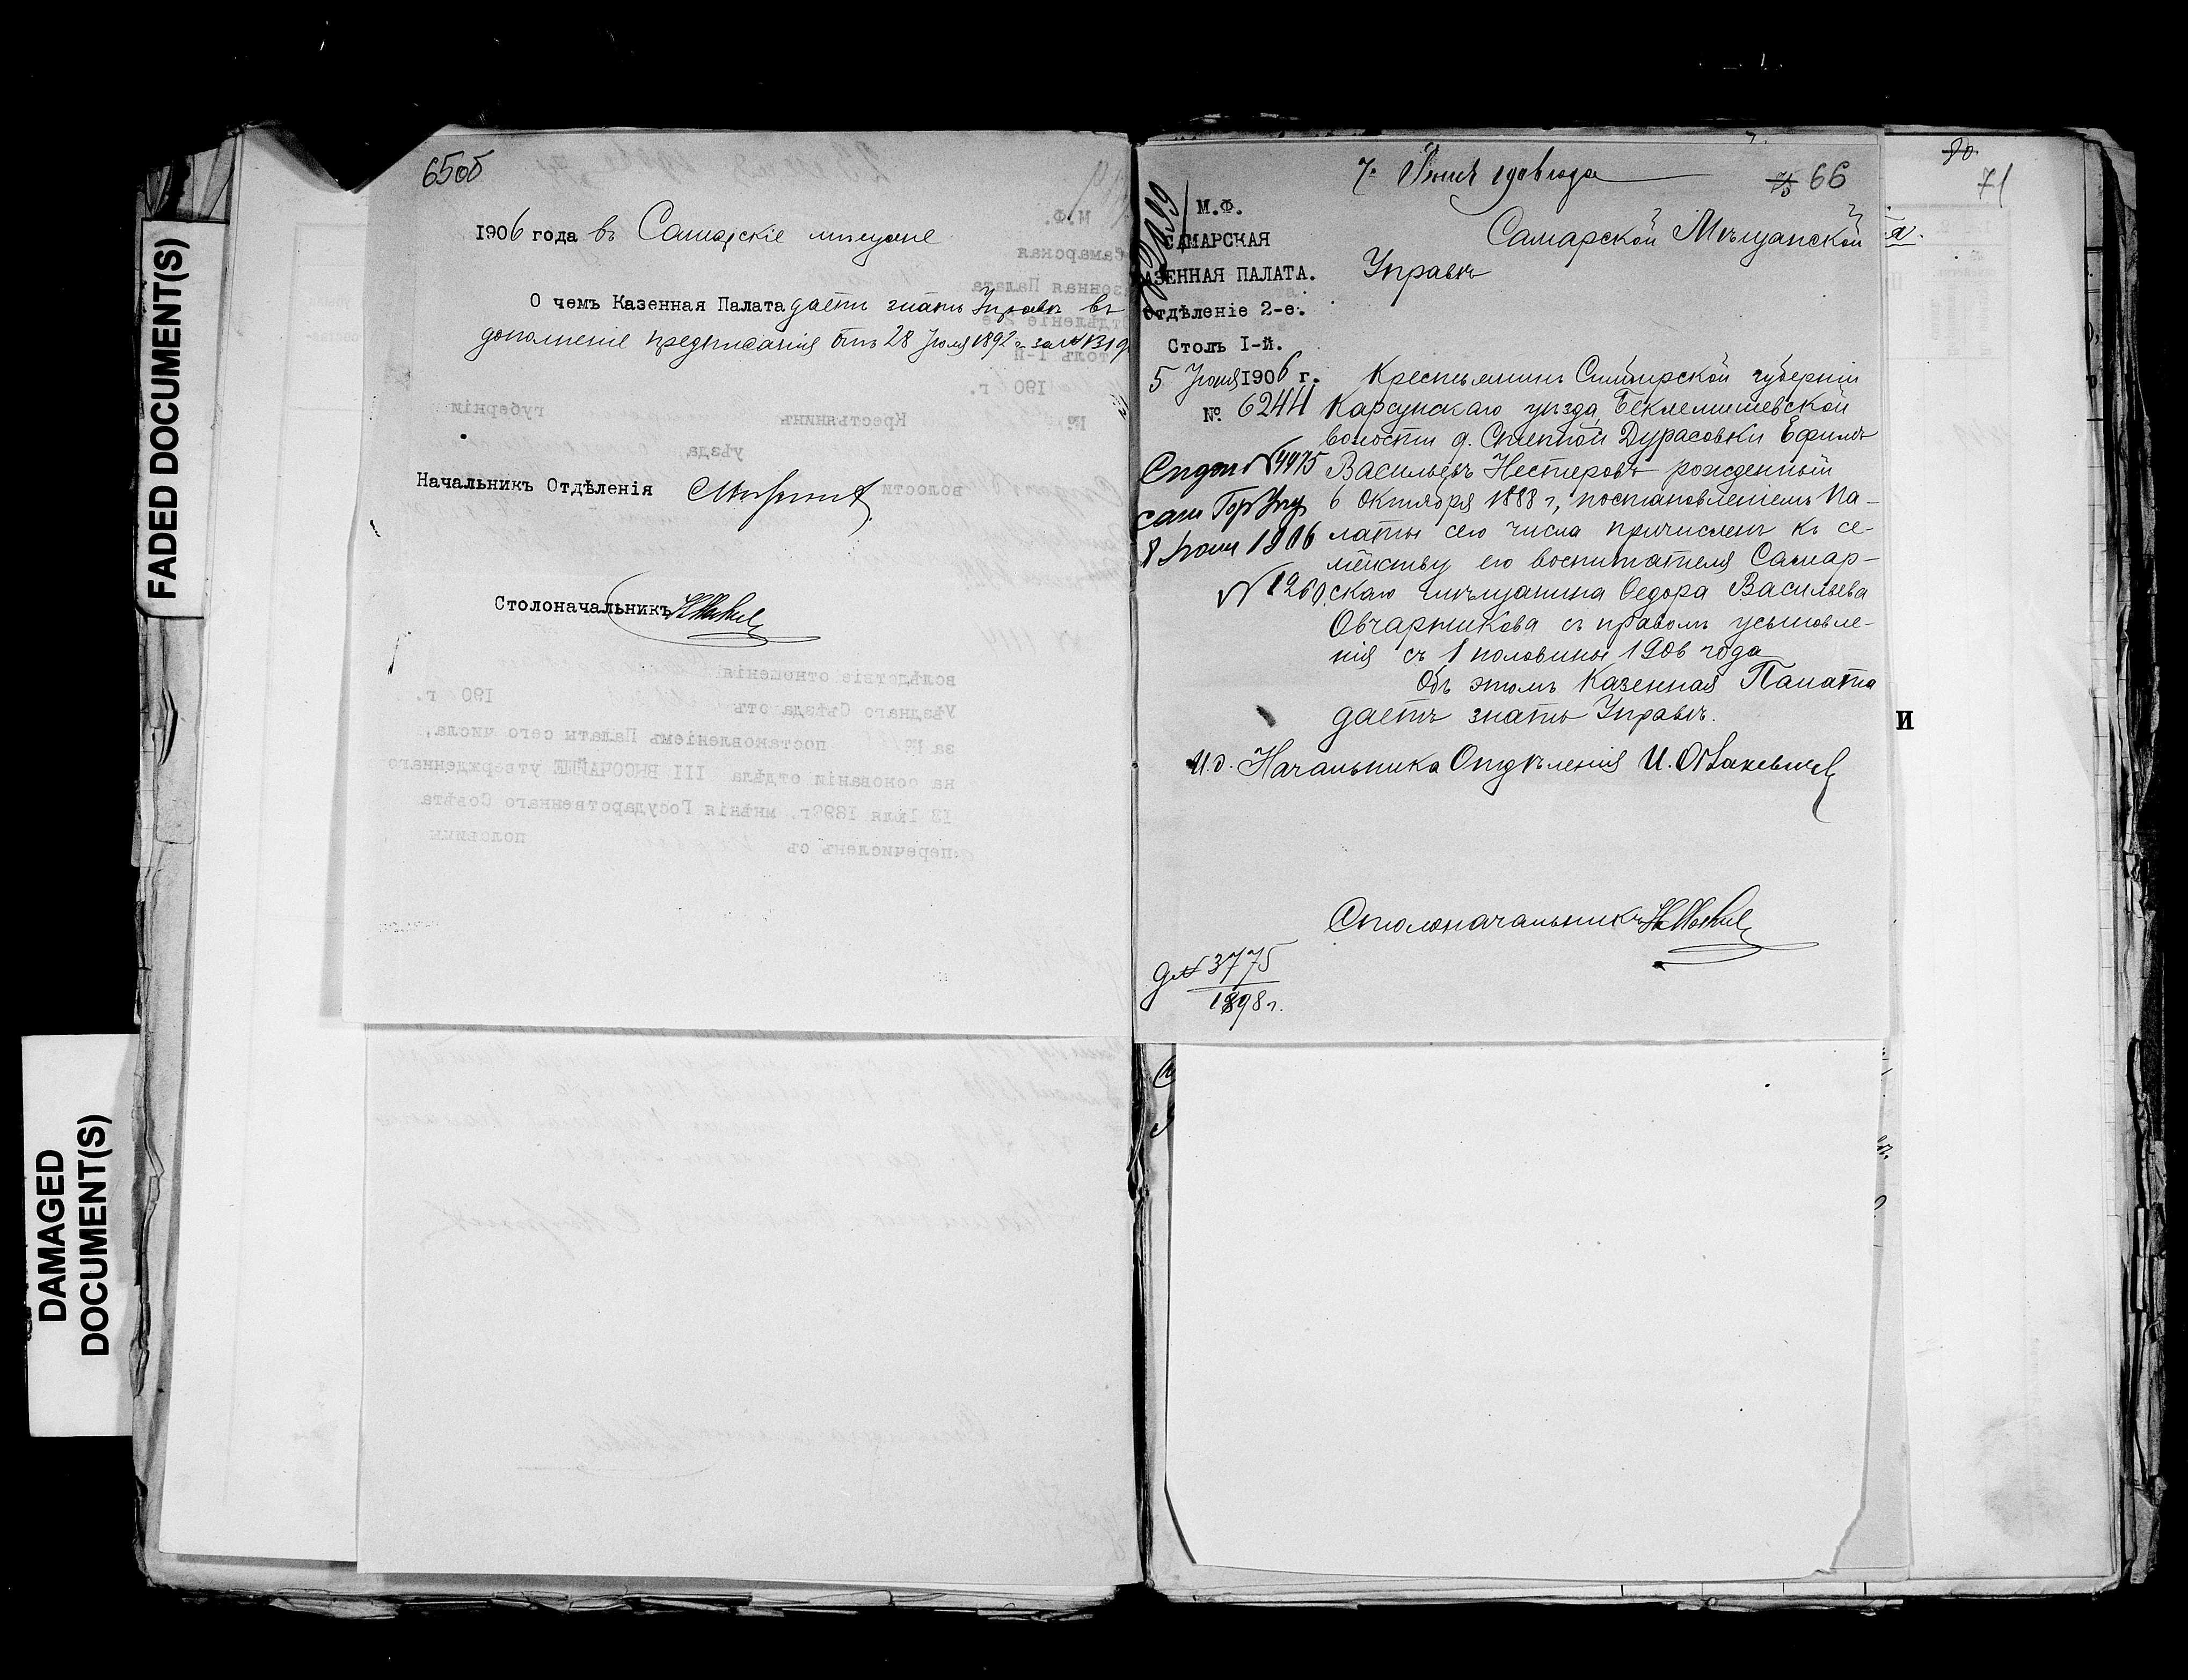 FADED DOCUMENT(S)
DAMAGED
DOCUMENT(S)
65об
1906 года въ Самарскіе мѣщане
О чемъ Казенная Палата даетъ знать Управѣ въ
дополненіе предписанія отъ 28 Іюля 1892 г. за №
Начальникъ Отдѣленія
Столоначальникъ
7. Іюня 1906 года
66
М.Ф.
САМАРСКАЯ
АЗЕННАЯ ПАЛАТА.
Отдѣленіе 2-е.
Столъ I-й.
5 Іюня 1906 г.
№ 6244
Самарской Мѣщанской
Управѣ
Крестьянинъ Симбирской губерніи
Карсунскаго уѣзда, Беклемишевской
волости д. Степной Дурасовки Ефимъ
Васильевъ Нестеровъ рожденный
6 Октября 1888 г, постановленіемъ Па-
латы сего числа причисленъ къ се-
мейству его воспитателя Самар-
скаго мѣщанина Ѳедора Васильева
Овчарникова съ правомъ усыновле-
нія съ 1 половины 1906 года
Объ этомъ Казенная Палата
даетъ знать Управѣ.
И.д. Начальника Отдѣленія И.
Столоначальникъ
№4475
Сам Гор Упр
8 Іюня 1906
№ 1260
д№ 3775
1898 г.
90
71
И